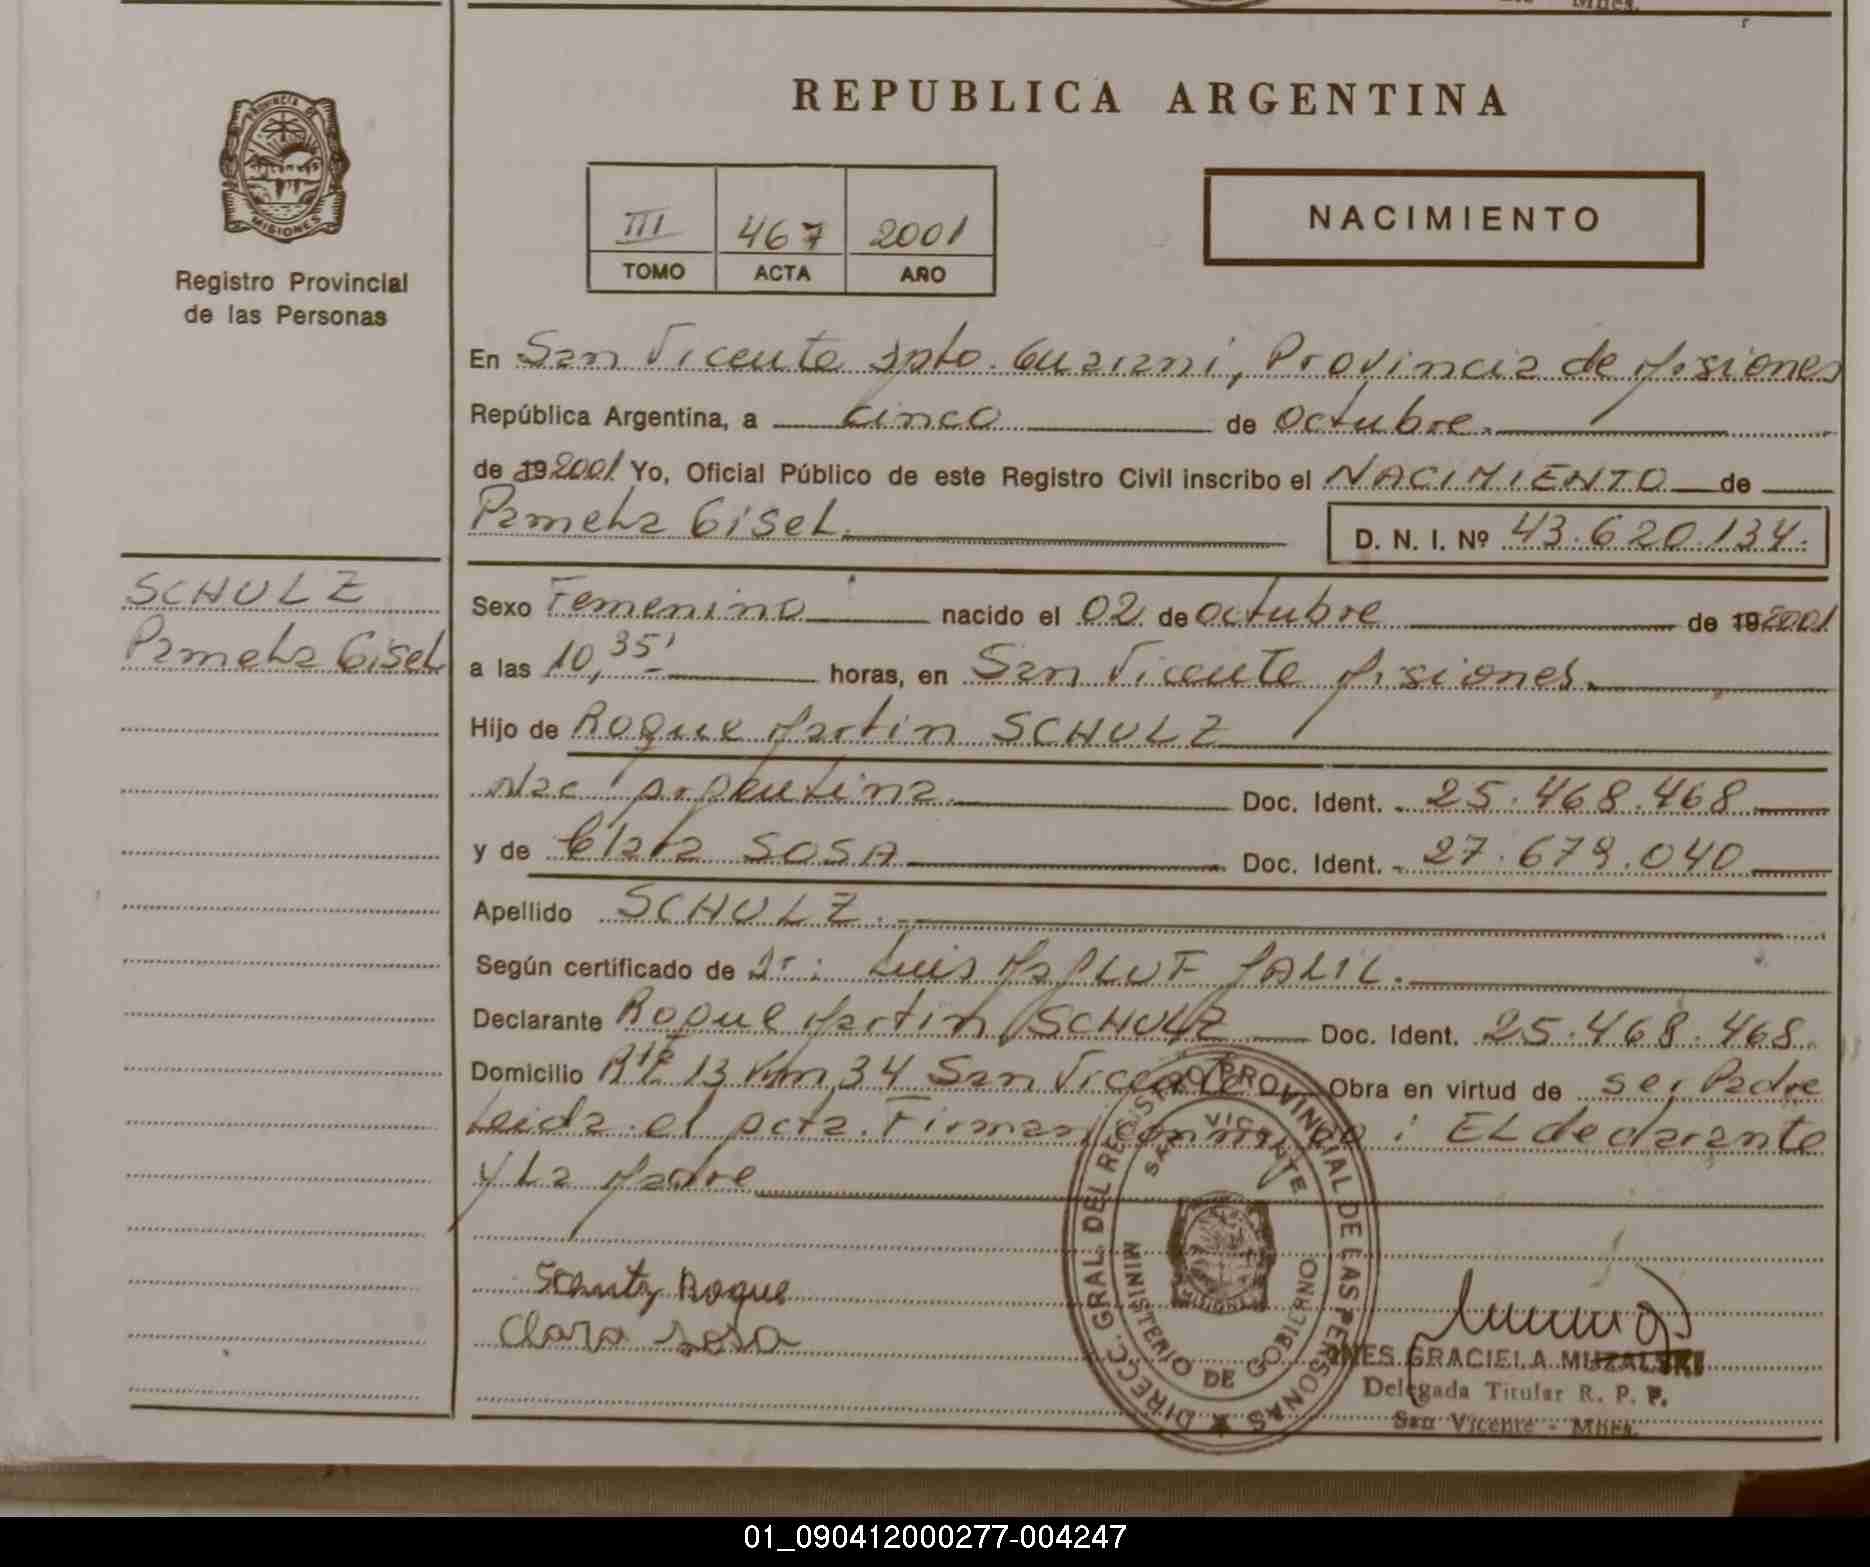 REPUBLICA ARGENTINA
PROVINCIA DE
MISIONES
Registro Provincial
de las Personas
III 467 2001
TOMO ACTA AÑO
NACIMIENTO
En San Vicente Dpto. Guarani, Provincia de Misiones
República Argentina, a cinco de Octubre.
de 19 2001 Yo, Oficial Público de este Registro Civil inscribo el NACIMIENTO de
Pamela Gisel
D. N. I. Nº 43.620.134.
SCHULZ
Pamela Gisel
Sexo Femenino nacido el 02 de octubre de 19 2001
a las 10,35' horas, en San Vicente Misiones.
Hijo de Roque Martin SCHULZ
Nac Argentina. Doc. Ident. 25.468.468
y de Clara SOSA Doc. Ident. 27.679.040
Apellido SCHULZ.
Según certificado de Dr: Luis JALIL.
Declarante Roque Martin SCHULZ Doc. Ident. 25.468.468.
Domicilio Rta 13 Km 34 San Vicente Obra en virtud de ser Padre
Leida el acta. Firman conmigo: EL declarante
y La Madre
DIRECC. GRAL. DEL REGISTRO PROVINCIAL DE LAS PERSONAS
SAN VICENTE
MINISTERIO DE GOBIERNO
MISIONES
Schulz Roque
Clara Sosa
INES GRACIELA MUZALSKI
Delegada Titular R. P. P.
San Vicente - Mnes.
01_090412000277-004247